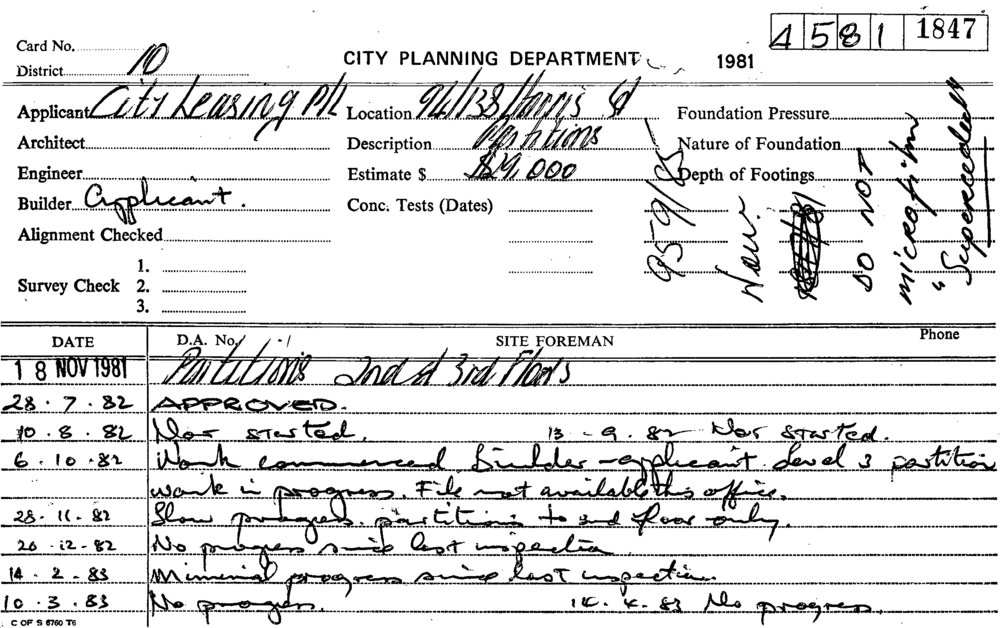 4581 1847
Card No.
District 10
CITY PLANNING DEPARTMENT 1981
Applicant City Leasing P/L Location 94/138 Harris St Foundation Pressure
Architect Description Partitions Nature of Foundation
Engineer Estimate $ $29,000 Depth of Footings
Builder Applicant. Conc. Tests (Dates)
Alignment Checked
1.
Survey Check 2.
3.
959/85
New.
DO NOT
microfilm
"Superceeded"
DATE D.A. No. SITE FOREMAN Phone
18 NOV 1981 Partitions 2nd & 3rd Floors
28.7.82 APPROVED.
10.8.82 Not started. 13-9.82 Not started.
6.10.82 Work commenced Builder-applicant. Level 3 partition
work in progress. File not available this office.
28.11.82 Slow progress. partitions to 3rd floor only.
20.12.82 No progress since last inspection
14.2.83 Minimial progress since last inspection.
10.3.83 No progress. 14.4.83 No progress.
C OF S 6760 T6